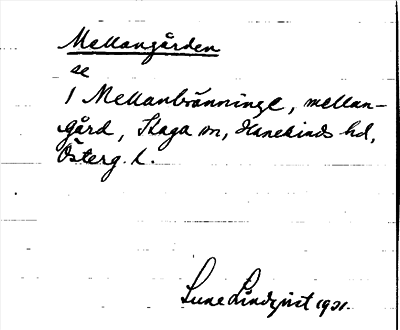 Mellangården
se
1 Mellanbränninge, mellan-
gård, Skaga sn, Hanekinds hd,
Österg. l.
Sune Lindqvist 1921.